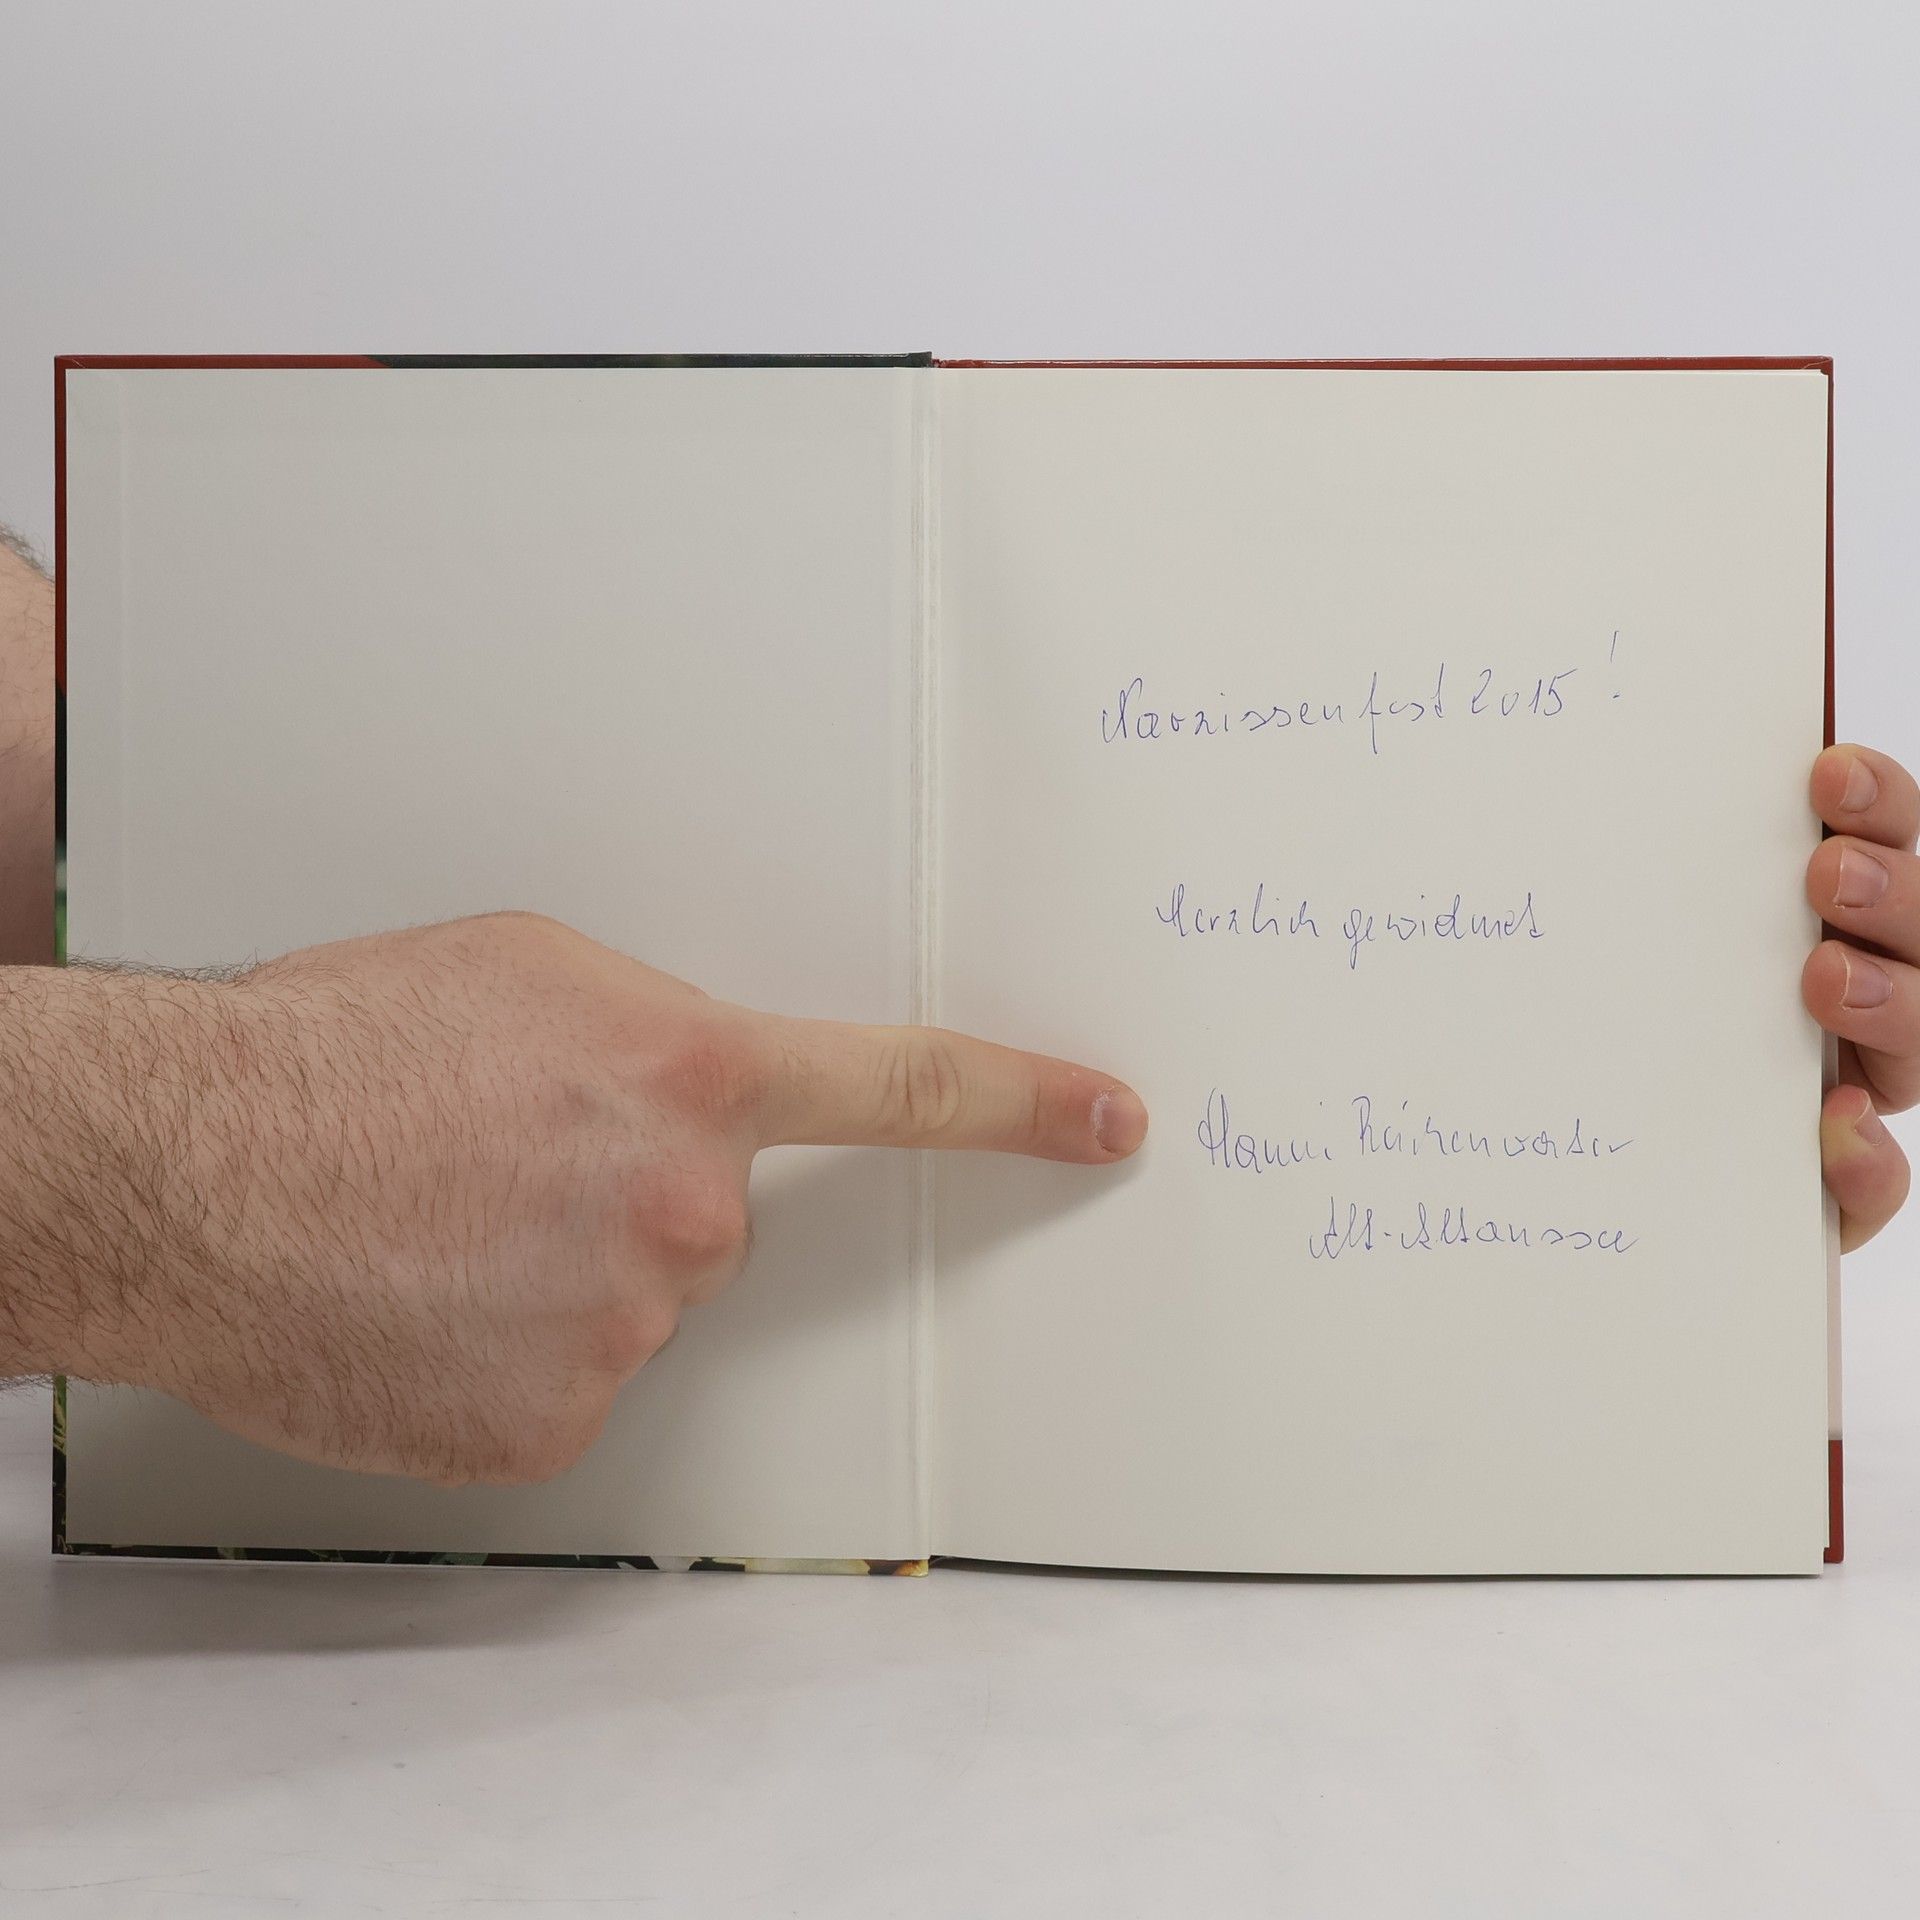 Narzissenfest 2015!
Herzlich gewidmet
Hanni
Alt-Altaussee